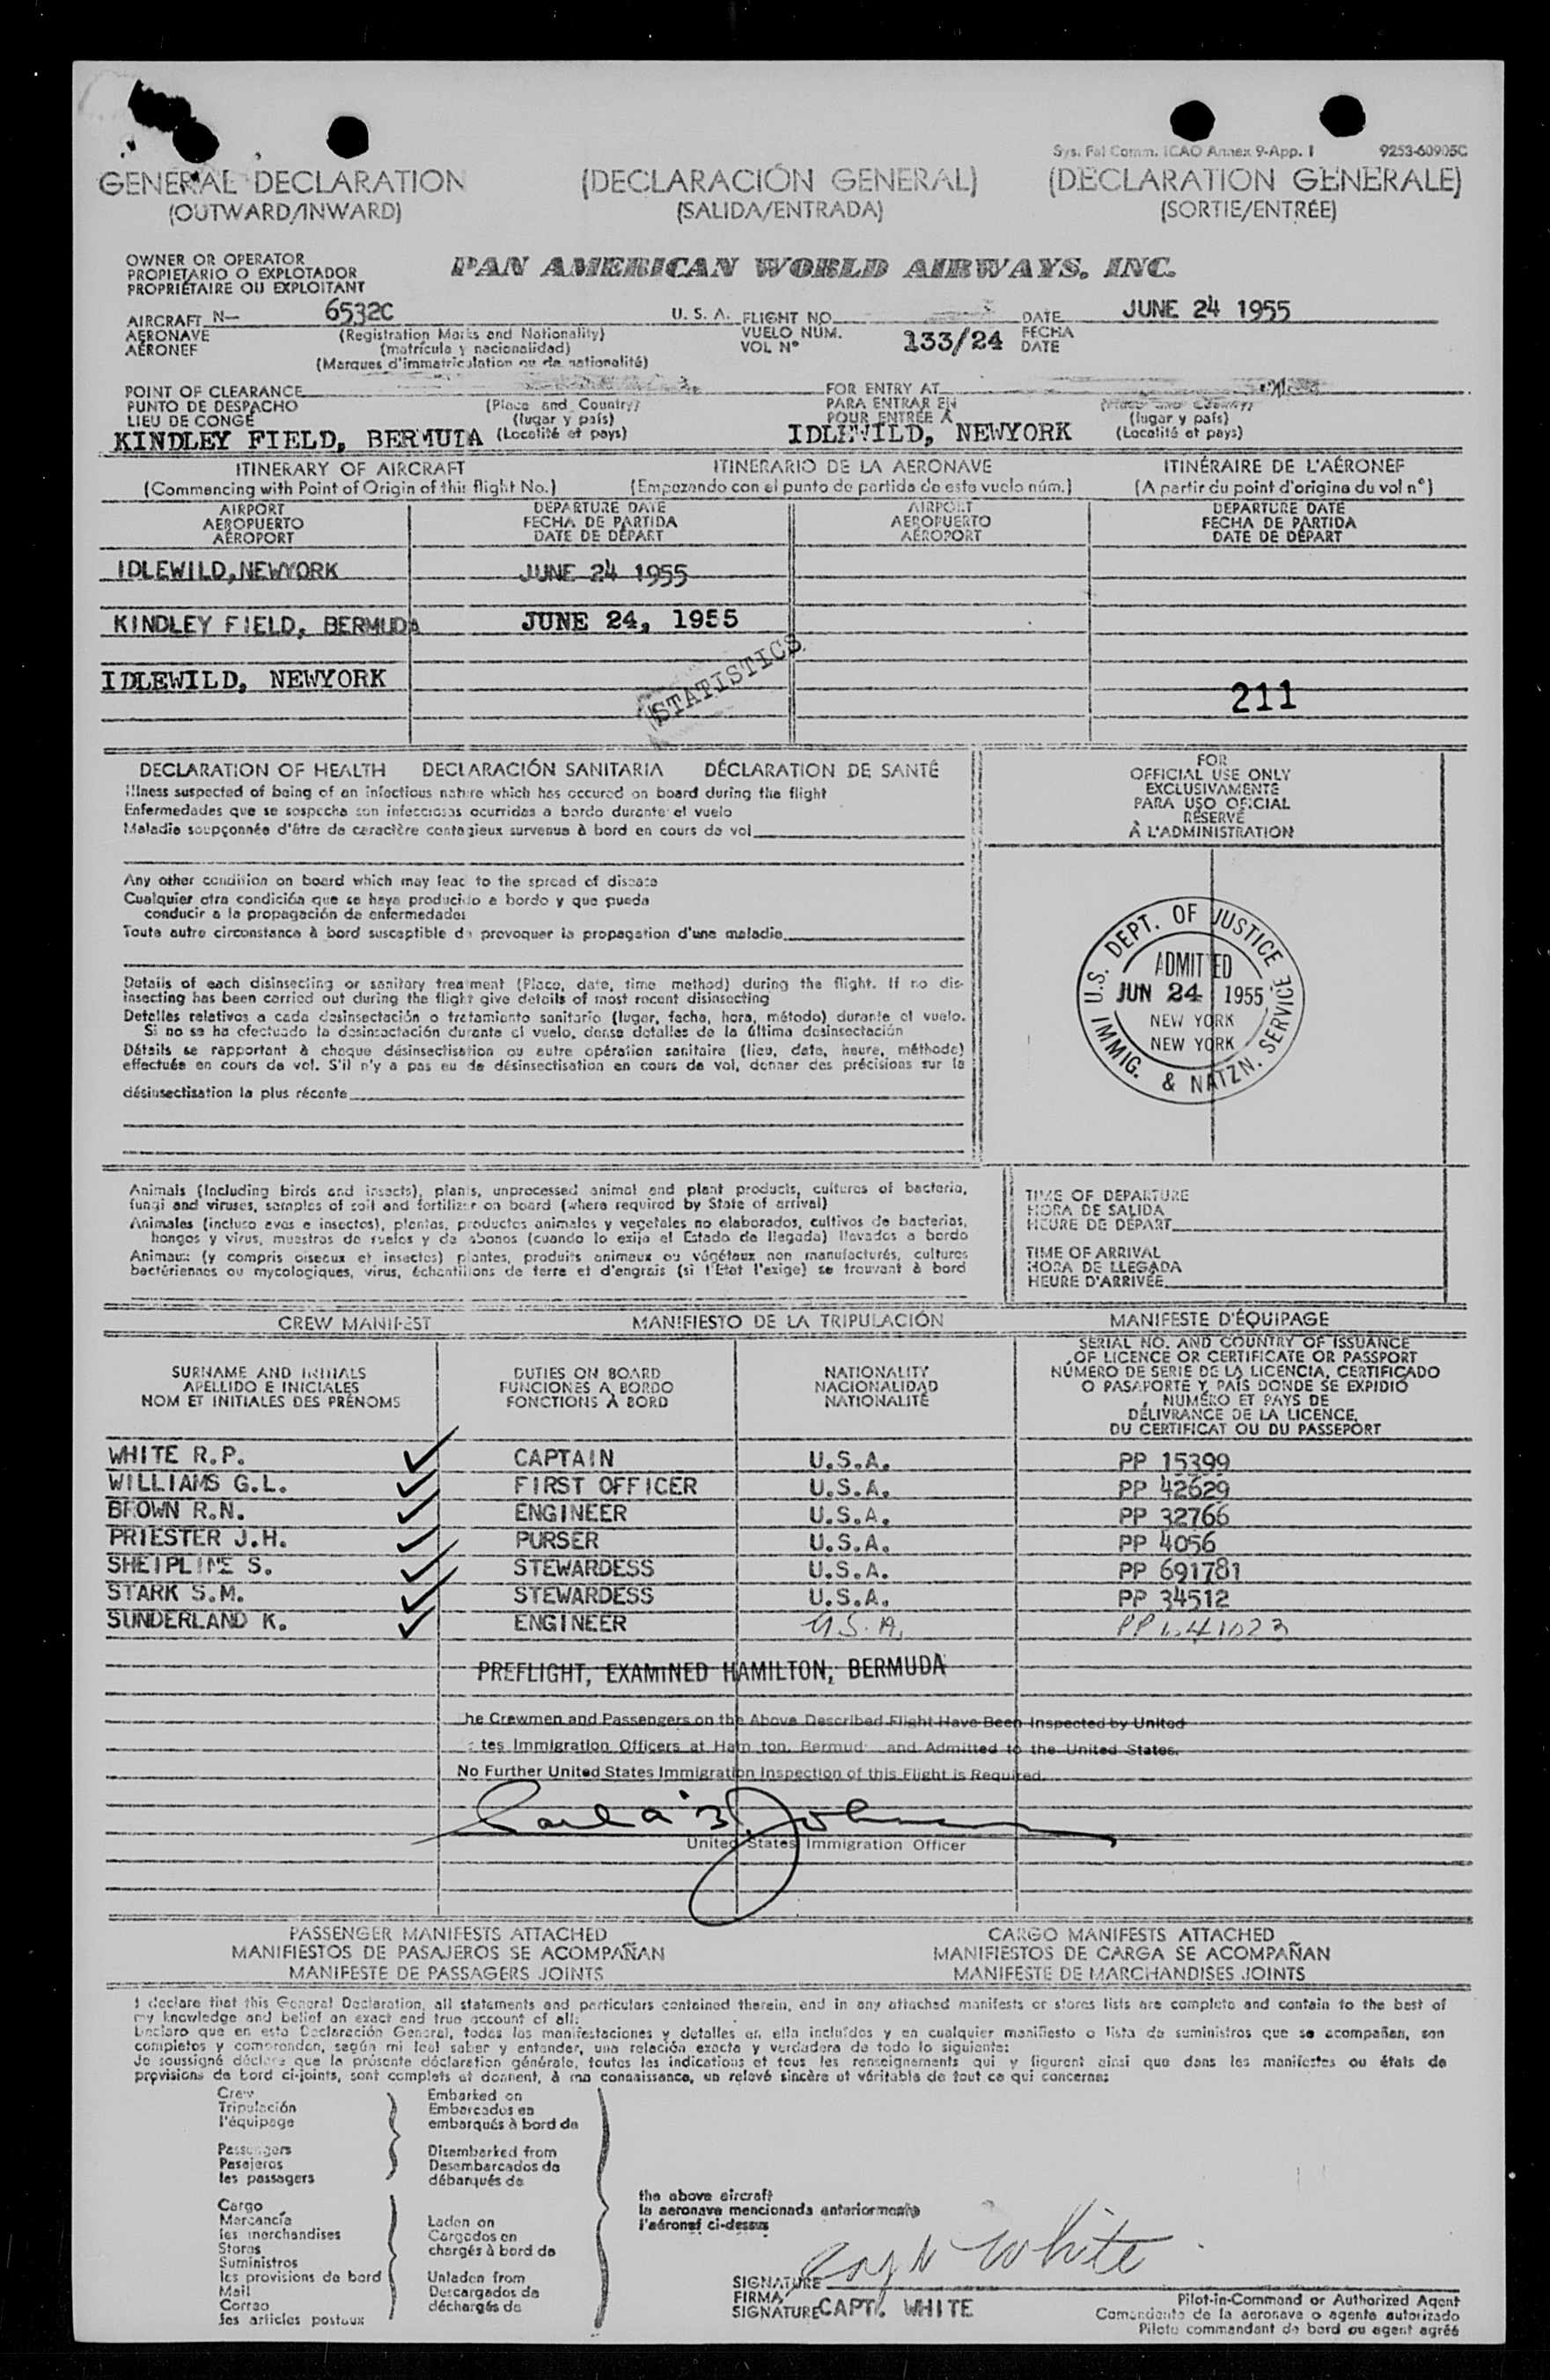 Sys. Fal Comm. ICAO Annex 9-App. I 9253-60905C
GENERAL DECLARATION (DECLARACIÓN GENERAL) (DECLARATION GENERALE)
(OUTWARD/INWARD) (SALIDA/ENTRADA) (SORTIE/ENTRÉE)
OWNER OR OPERATOR
PROPIETARIO O EXPLOTADOR
PROPRIÉTAIRE OU EXPLOITANT
PAN AMERICAN WORLD AIRWAYS, INC.
AIRCRAFT N— 6532C U. S. A. FLIGHT NO. DATE JUNE 24 1955
AERONAVE (Registration Marks and Nationality) VUELO NÚM. 133/24 FECHA
AÉRONEF (matrícula y nacionalidad) VOL N° DATE
(Marques d'immatriculation ou de nationalité)
POINT OF CLEARANCE FOR ENTRY AT
PUNTO DE DESPACHO (Place and Country) PARA ENTRAR EN (Place and Country)
LIEU DE CONGÉ (lugar y país) POUR ENTRÉE À (lugar y país)
KINDLEY FIELD, BERMUDA (Localité et pays) IDLEWILD, NEWYORK (Localité et pays)
ITINERARY OF AIRCRAFT ITINERARIO DE LA AERONAVE ITINÉRAIRE DE L'AÉRONEF
(Commencing with Point of Origin of this flight No.) (Empezando con el punto de partida de este vuelo núm.) (A partir du point d'origine du vol n°)
AIRPORT DEPARTURE DATE AIRPORT DEPARTURE DATE
AEROPUERTO FECHA DE PARTIDA AEROPUERTO FECHA DE PARTIDA
AÉROPORT DATE DE DÉPART AÉROPORT DATE DE DÉPART
IDLEWILD, NEWYORK JUNE 24 1955
KINDLEY FIELD, BERMUDA JUNE 24, 1955
IDLEWILD, NEWYORK
STATISTICS
211
DECLARATION OF HEALTH DECLARACIÓN SANITARIA DÉCLARATION DE SANTÉ
Illness suspected of being of an infectious nature which has occured on board during the flight
Enfermedades que se sospecha son infecciosas ocurridas a bordo durante el vuelo
Maladie soupçonnée d'être de caractère contagieux survenue à bord en cours de vol
Any other condition on board which may lead to the spread of disease
Cualquier otra condición que se haya producido a bordo y que pueda
conducir a la propagación de enfermedades
Toute autre circonstance à bord susceptible de provoquer la propagation d'une maladie
Details of each disinsecting or sanitary treatment (Place, date, time method) during the flight. If no dis-
insecting has been carried out during the flight give details of most recent disinsecting
Detalles relativos a cada desinsectación o tratamiento sanitario (lugar, fecha, hora, método) durante el vuelo.
Si no se ha efectuado la desinsectación durante el vuelo, dense detalles de la última desinsectación
Détails se rapportant à chaque désinsectisation ou autre opération sanitaire (lieu, date, heure, méthode)
effectuée en cours de vol. S'il n'y a pas eu de désinsectisation en cours de vol, donner des précisions sur la
désinsectisation la plus récente
FOR
OFFICIAL USE ONLY
EXCLUSIVAMENTE
PARA USO OFICIAL
RESERVÉ
À L'ADMINISTRATION
U.S. DEPT. OF JUSTICE
ADMITTED
JUN 24 1955
NEW YORK
NEW YORK
IMMIG. & NATZN. SERVICE
Animals (Including birds and insects), plants, unprocessed animal and plant products, cultures of bacteria,
fungi and viruses, samples of soil and fertilizer on board (where required by State of arrival)
Animales (incluso aves e insectos), plantas, productos animales y vegetales no elaborados, cultivos de bacterias,
hongos y virus, muestras de suelos y de abonos (cuando lo exija el Estado de llegada) llevados a bordo
Animaux (y compris oiseaux et insectes) plantes, produits animaux ou végétaux non manufacturés, cultures
bactériennes ou mycologiques, virus, échantillons de terre et d'engrais (si l'État l'exige) se trouvant à bord
TIME OF DEPARTURE
HORA DE SALIDA
HEURE DE DÉPART
TIME OF ARRIVAL
HORA DE LLEGADA
HEURE D'ARRIVÉE
CREW MANIFEST MANIFIESTO DE LA TRIPULACIÓN MANIFESTE D'ÉQUIPAGE
SURNAME AND INITIALS
APELLIDO E INICIALES
NOM ET INITIALES DES PRÉNOMS
DUTIES ON BOARD
FUNCIONES A BORDO
FONCTIONS À BORD
NATIONALITY
NACIONALIDAD
NATIONALITÉ
SERIAL NO. AND COUNTRY OF ISSUANCE
OF LICENCE OR CERTIFICATE OR PASSPORT
NÚMERO DE SERIE DE LA LICENCIA, CERTIFICADO
O PASAPORTE Y PAÍS DONDE SE EXPIDIÓ
NUMÉRO ET PAYS DE
DÉLIVRANCE DE LA LICENCE,
DU CERTIFICAT OU DU PASSEPORT
WHITE R.P. CAPTAIN U.S.A. PP 15399
WILLIAMS G.L. FIRST OFFICER U.S.A. PP 42629
BROWN R.N. ENGINEER U.S.A. PP 32766
PRIESTER J.H. PURSER U.S.A. PP 4056
SHEIPLINE S. STEWARDESS U.S.A. PP 691781
STARK S.M. STEWARDESS U.S.A. PP 34512
SUNDERLAND K. ENGINEER U.S.A. PP
PREFLIGHT, EXAMINED HAMILTON, BERMUDA
he Crewmen and Passengers on the Above Described Flight Have Been Inspected by United
tes Immigration Officers at Ham ton, Bermud and Admitted to the United States.
No Further United States Immigration Inspection of this Flight is Required.
United States Immigration Officer
PASSENGER MANIFESTS ATTACHED CARGO MANIFESTS ATTACHED
MANIFIESTOS DE PASAJEROS SE ACOMPAÑAN MANIFIESTOS DE CARGA SE ACOMPAÑAN
MANIFESTE DE PASSAGERS JOINTS MANIFESTE DE MARCHANDISES JOINTS
I declare that this General Declaration, all statements and particulars contained therein, and in any attached manifests or stores lists are complete and contain to the best of
my knowledge and belief an exact and true account of all:
Declaro que en esta Declaración General, todas las manifestaciones y detalles en ella incluídos y en cualquier manifiesto o lista de suministros que se acompañan, son
completos y comprenden, según mi leal saber y entender, una relación exacta y verdadera de todo lo siguiente:
Je soussigné déclare que la présente déclaration générale, toutes les indications et tous les renseignements qui y figurent ainsi que dans les manifestes ou états de
provisions de bord ci-joints, sont complets et donnent, à ma connaissance, un relevé sincère et véritable de tout ce qui concerne:
Crew
Tripulación
l'équipage
Passengers
Pasajeros
les passagers
Cargo
Mercancía
les merchandises
Stores
Suministros
les provisions de bord
Mail
Correo
les articles postaux
Embarked on
Embarcados en
embarqués à bord de
Disembarked from
Desembarcados de
débarqués de
Laden on
Cargados en
chargés à bord de
Unladen from
Descargados de
déchargés de
the above aircraft
la aeronave mencionada anteriormente
l'aéronef ci-dessus
White
SIGNATURE
FIRMA
SIGNATURE CAPT. WHITE
Pilot-in-Command or Authorized Agent
Comandante de la aeronave o agente autorizado
Pilote commandant de bord ou agent agréé